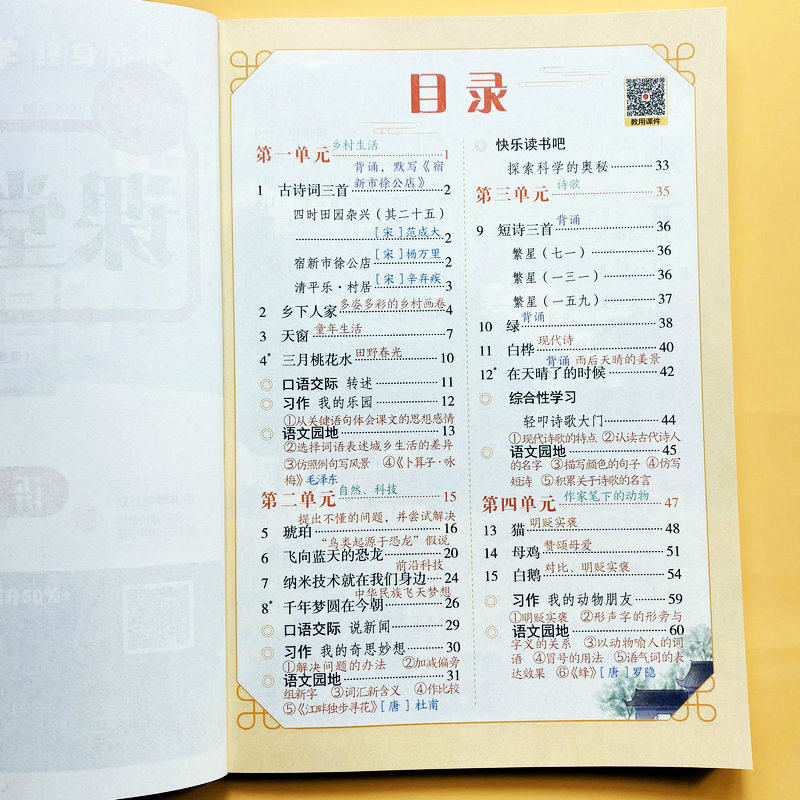 目录
教用课件
第一单元 乡村生活 1
背诵，默写《宿
新市徐公店》
1 古诗词三首 2
四时田园杂兴（其二十五）
[宋]范成大 2
宿新市徐公店 [宋]杨万里 2
清平乐·村居 [宋]辛弃疾 3
2 乡下人家 多姿多彩的乡村画卷 4
3 天窗 童年生活 7
4* 三月桃花水 田野春光 10
口语交际 转述 11
习作 我的乐园 12
①从关键语句体会课文的思想感情
语文园地 13
②选择词语表述城乡生活的差异
③仿照例句写风景 ④《卜算子·咏
梅》毛泽东
第二单元 自然、科技 15
提出不懂的问题，并尝试解决
5 琥珀 16
“鸟类起源于恐龙”假说
6 飞向蓝天的恐龙 20
前沿科技
7 纳米技术就在我们身边 24
中华民族飞天梦想
8* 千年梦圆在今朝 26
口语交际 说新闻 29
习作 我的奇思妙想 30
①解决问题的办法 ②加减偏旁
语文园地 31
组新字 ③词汇新含义 ④作比较
⑤《江畔独步寻花》[唐]杜甫
快乐读书吧
探索科学的奥秘 33
第三单元 诗歌 35
9 短诗三首 背诵 36
繁星（七一） 36
繁星（一三一） 36
繁星（一五九） 37
10 绿 背诵 38
11 白桦 现代诗 40
背诵 雨后天晴的美景
12* 在天晴了的时候 42
综合性学习
轻叩诗歌大门 44
①现代诗歌的特点 ②认读古代诗人
语文园地 45
的名字 ③描写颜色的句子 ④仿写
短诗 ⑤积累关于诗歌的名言
第四单元 作家笔下的动物 47
13 猫 明贬实褒 48
14 母鸡 赞颂母爱 51
15 白鹅 对比、明贬实褒 54
习作 我的动物朋友 59
①明贬实褒 ②形声字的形旁与
语文园地 60
字义的关系 ③以动物喻人的词
语 ④冒号的用法 ⑤语气词的表
达效果 ⑥《蜂》[唐]罗隐